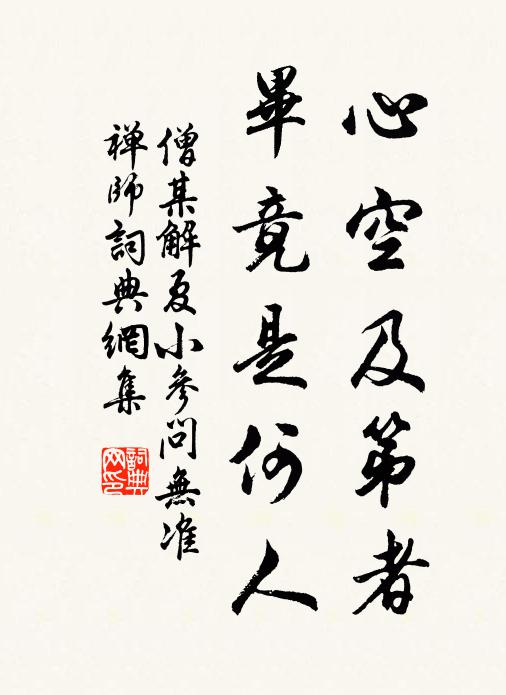 心空及第者
畢竟是何人
僧某解夏小參問無准
禅師詞典網集
詞典
网印